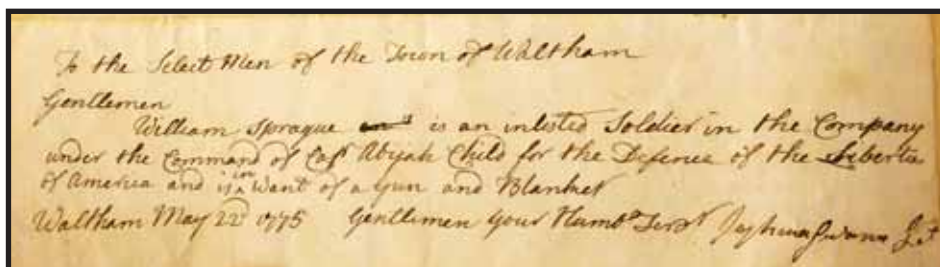 To the Select Men of the Town of Waltham
Gentlemen
William Sprague is an inlisted Soldier in the Company
under the Command of Capt Abijah Child for the Defence of the Liberties
of America and is in Want of a Gun and Blanket
Waltham May 22d 1775 Gentlemen Your Humbe Servt